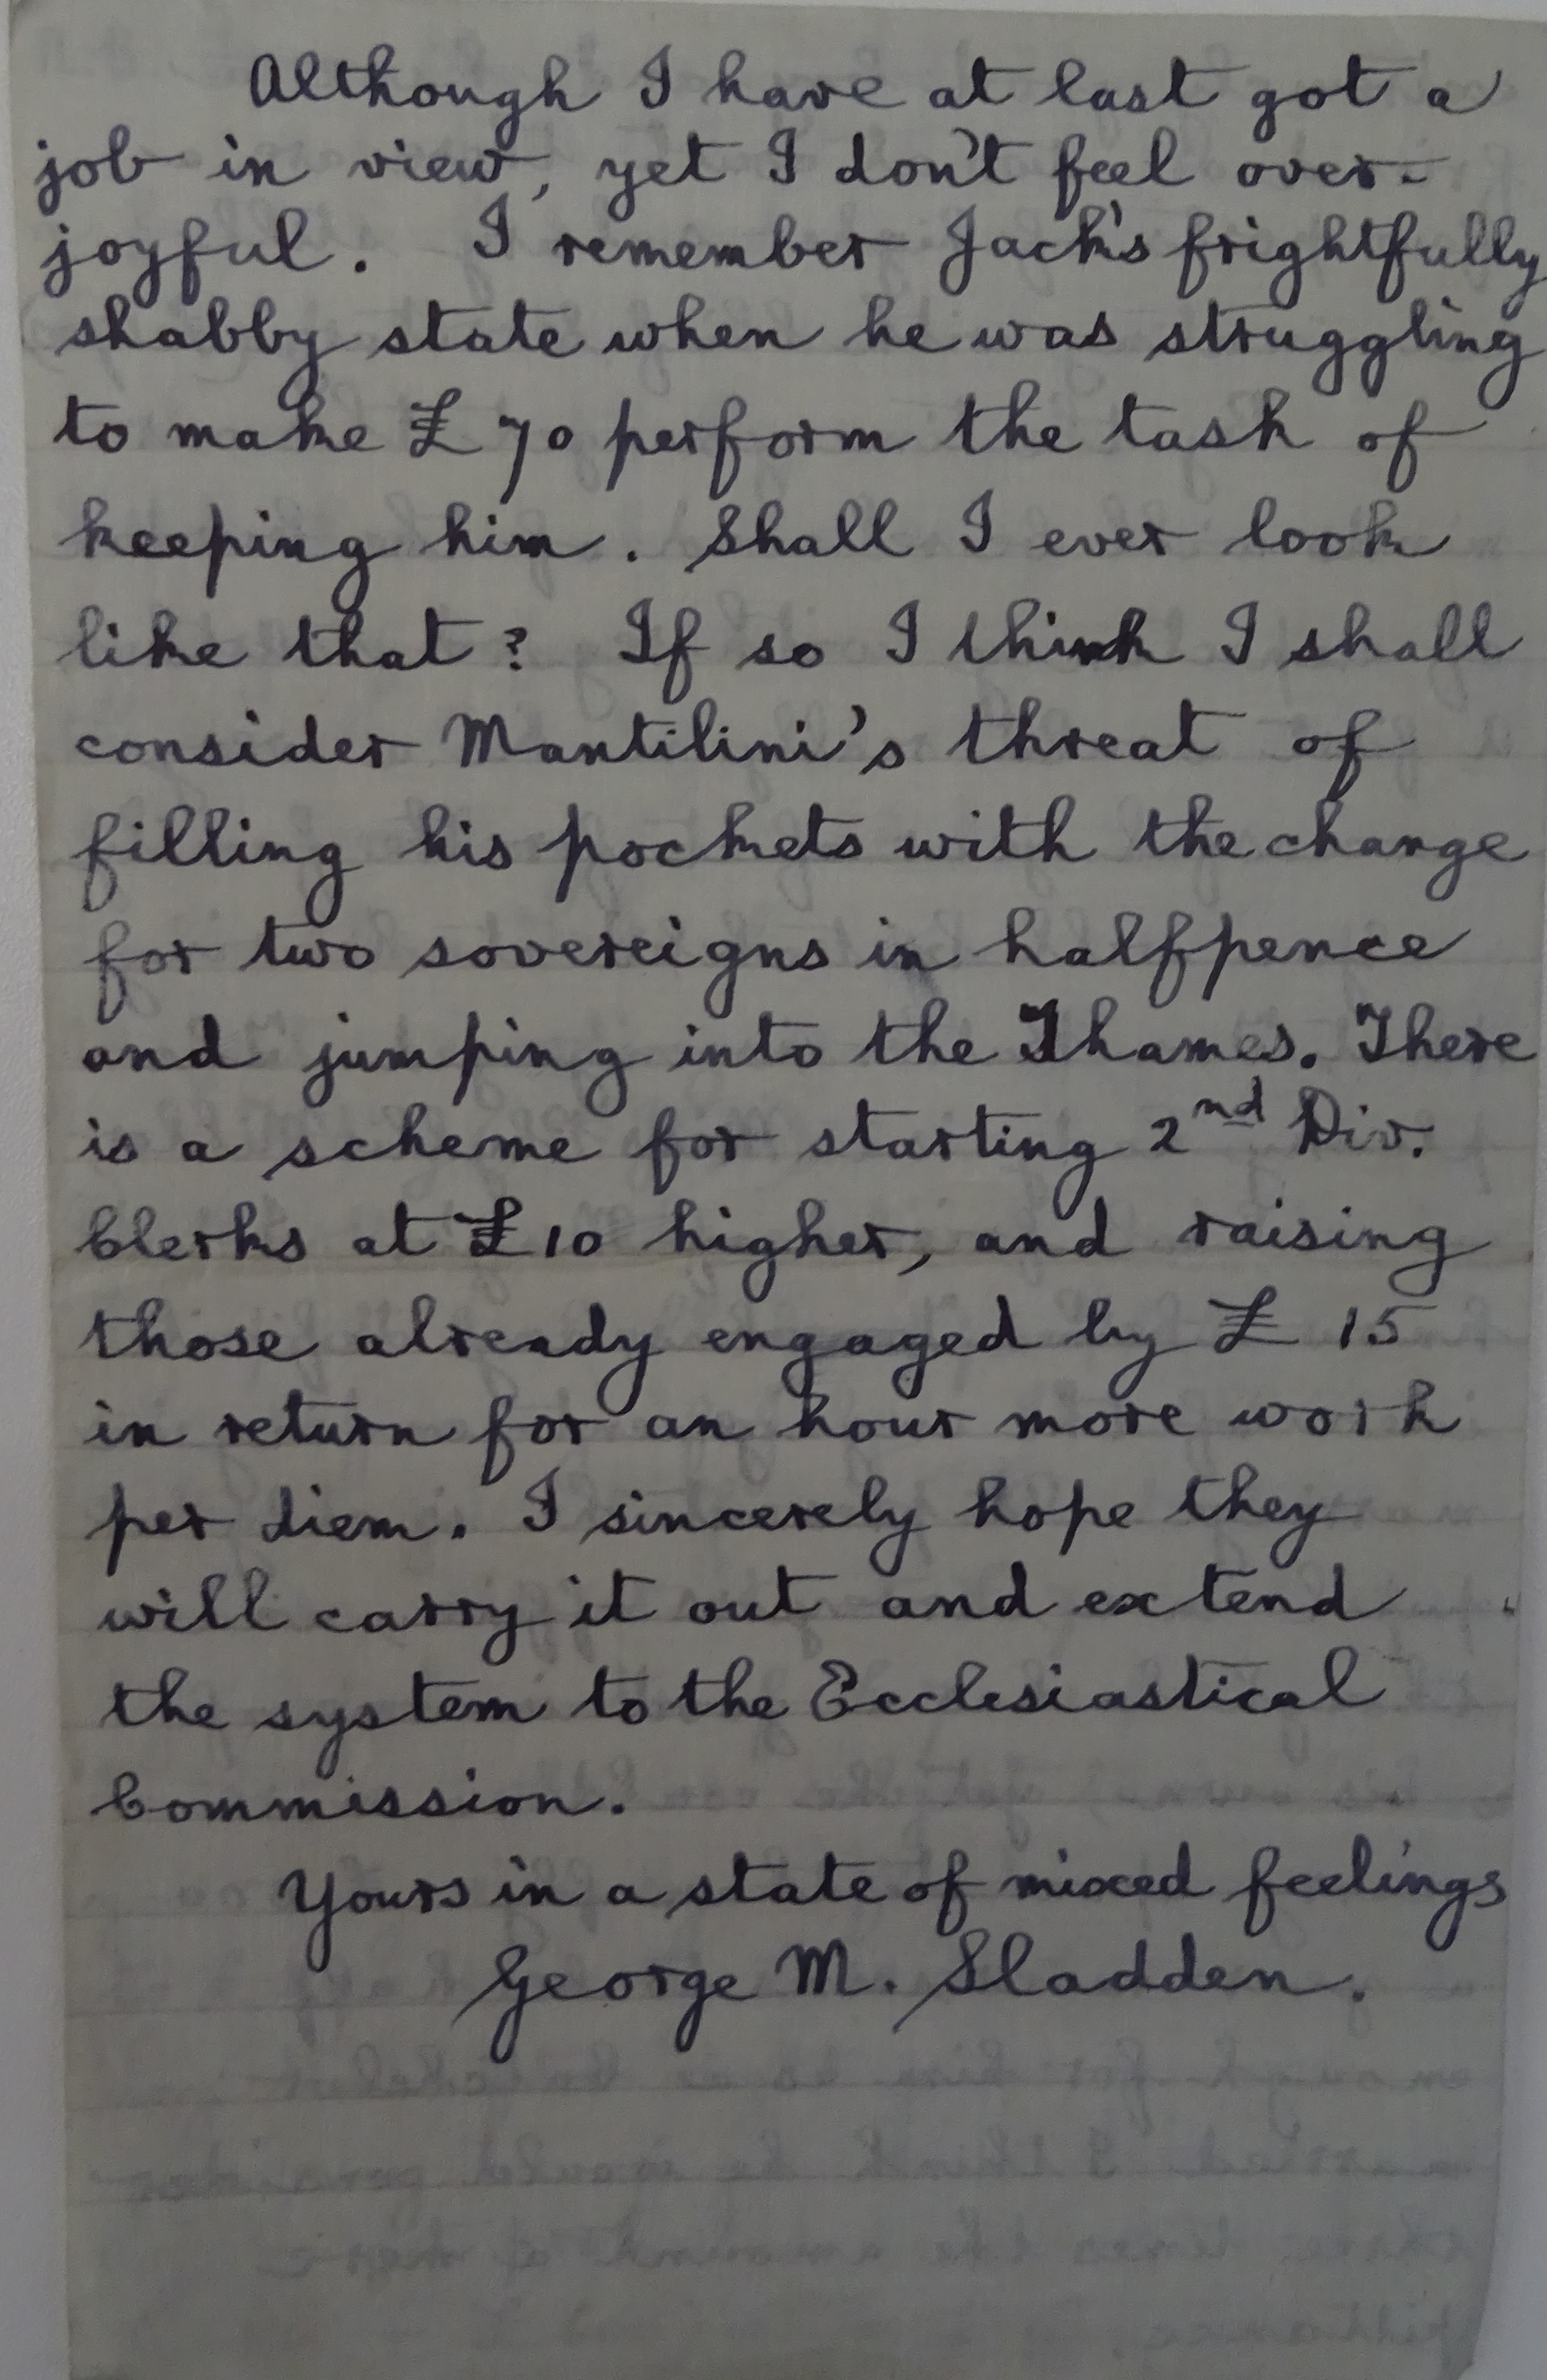 Although I have at last got a
job in view, yet I don't feel over-
joyful. I remember Jack's frightfully
shabby state when he was struggling
to make £70 perform the task of
keeping him. Shall I ever look
like that? If so I think I shall
consider Mantilini's threat of
filling his pockets with the change
for two sovereigns in halfpence
and jumping into the Thames. There
is a scheme for starting 2nd Div.
Clerks at £10 higher, and raising
those already engaged by £15
in return for an hour more work
per diem. I sincerely hope they
will carry it out and extend
the system to the Ecclesiastical
Commission.
Yours in a state of mixed feelings
George M. Sladden.